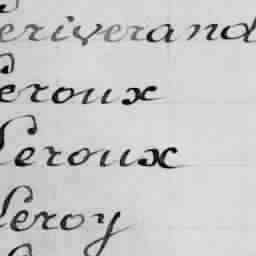 Leriverand
Leroux
Leroux
Leroy